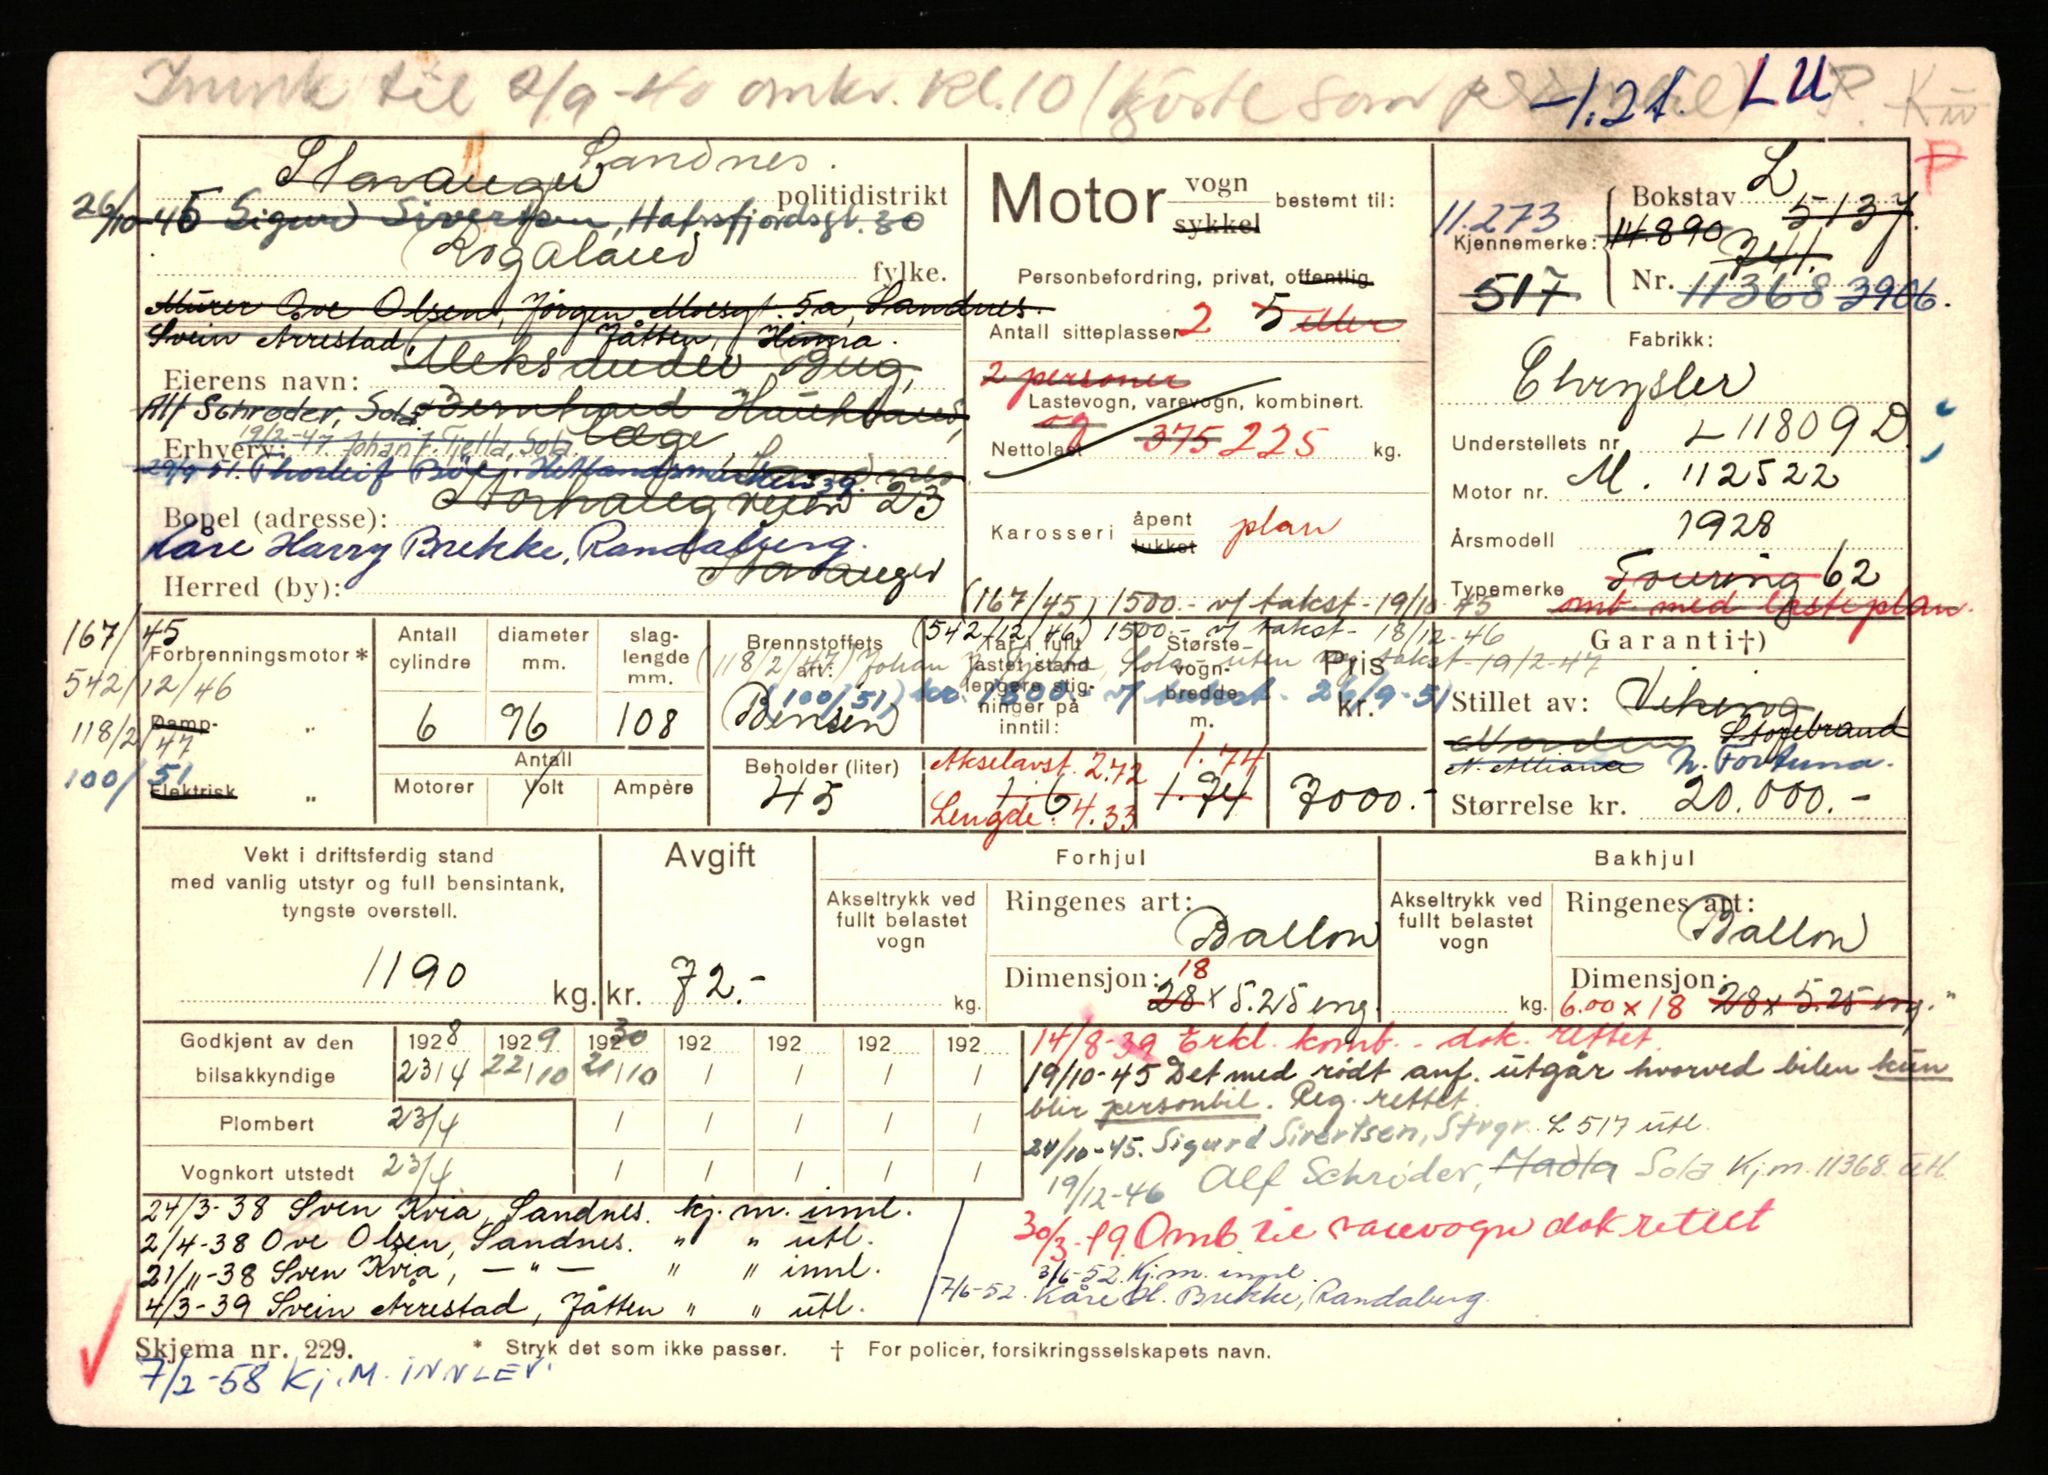 til 2/9-40 omkr. kl. 10 (
-1.21. LU P. Kw
P
Stavanger Sandnes.
politidistrikt
26/10-45 Sigurd Sivertsen, Hafrsfjordsgt. 30
Rogaland
fylke.
Murer Ove Olsen, Jörgen Moesgt. 5a, Sandnes.
Svein Arrestad, Jåtten, Hinna.
Aleksander Bug,
Eierens navn:
Alf Schrøder, Sola Bernhard Haukland,
Læge
Erhverv: 19/2-47 Johan F. Tjelta, Sola.
29/9 51. Thorleif Böe, Hetlandsmarken 39. Sandnes
Storhaugveien 23
Bopel (adresse):
Kåre Harry Brekke, Randaberg.
Stavanger
Herred (by):
Motor vogn sykkel bestemt til:
Personbefordring, privat, offentlig
Antall sitteplasser 2 5 eller
2 personer
Lastevogn, varevogn, kombinert.
og
Nettolast 375 225 kg.
Karosseri åpent lukket plan
Bokstav L
11.273 14.890 5137
Kjennemerke: 711.
517 Nr. 11368 3906.
Fabrikk:
Chrysler
Understellets nr L 11809 D
Motor nr. M. 112522
Årsmodell 1928
Typemerke Touring 62
omb. med lasteplan.
(167/45) 1500.- v/ takst - 19/10-45
(542/12/46) 1500.- v/ takst - 18/12-46
(118/2/47) Johan F. Tjelta, Sola - uten ny takst - 19/2-47
(100/51) kr. 1800.- v/ takst. 26/9-51
167/45
Forbrenningsmotor *
542/12/46
Damp- "
118/2/47
100/51
Elektrisk "
Antall cylindre
6
diameter mm.
96
slaglengde mm.
108
Antall
Motorer Volt Ampère
Brennstoffets art:
Bensin
Beholder (liter)
45
Tar i fullt lastet stand lengere stigninger på inntil:
Akselavst. 2.72
1:6
Lengde: 4.33
Største vognbredde m.
1.74
1.74
Pris kr.
7000.-
Garanti†)
Stillet av: Viking
Norden Storebrand
N. Alliance N. Fortuna.
Størrelse kr. 20.000.-
Vekt i driftsferdig stand
med vanlig utstyr og full bensintank,
tyngste overstell.
1190 kg.
Avgift
kr. 72.-
Forhjul
Akseltrykk ved fullt belastet vogn
kg.
Ringenes art:
Ballon
Dimensjon: 18
28 x 5.25 eng.
Bakhjul
Akseltrykk ved fullt belastet vogn
kg.
Ringenes art:
Ballon
Dimensjon:
6.00 x 18 28 x 5.25 eng. "
Godkjent av den bilsakkyndige 1928 1929 1930 192 192 192 192
23/4 22/10 21/10 / / / /
Plombert 23/4 / / / / /
Vognkort utstedt 23/4 / / / / /
14/8-39 Erkl. komb. - dok. rettet.
19/10-45 Det med rødt anf. utgår hvorved bilen kun
blir personbil. Reg. rettet.
24/10-45. Sigurd Sivertsen, Stvgr. L 517 utl.
19/12-46 Alf Schrøder, Madla Sola Kj.m. 11368. utl
30/3-49. Omb til varevogn dok rettet
3/6-52. Kj.m. innl.
7/6-52. Kåre H. Brekke, Randaberg.
24/3-38 Sven Kvia, Sandnes. kj. m. innl.
2/4-38 Ove Olsen, Sandnes. " " utl.
21/11-38 Sven Kvia, — " — " " innl.
4/3-39 Svein Arrestad, Jåtten " " utl.
Skjema nr. 229. * Stryk det som ikke passer. † For policer, forsikringsselskapets navn.
7/2-58 Kj. M. INNLEV.